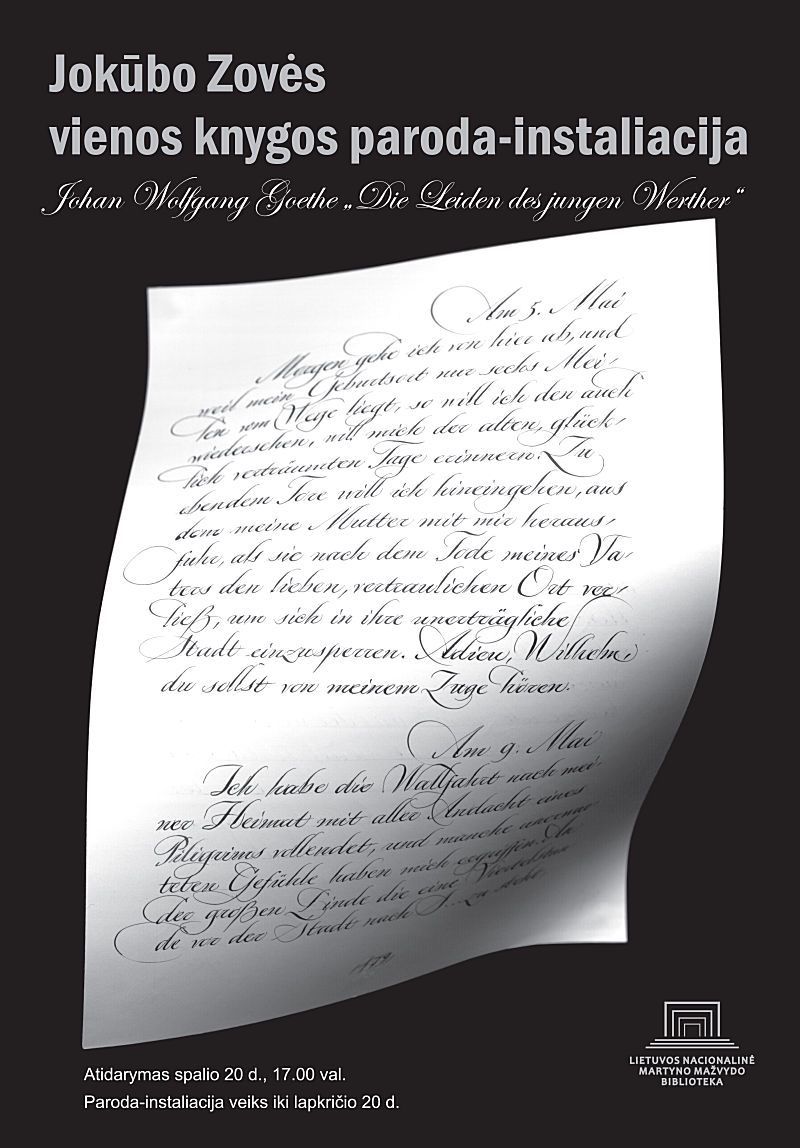 Jokūbo Zovės
vienos knygos paroda-instaliacija
Johan Wolfgang Goethe „Die Leiden des jungen Werther“
Am 5. Mai
Morgen gehe ich von hier ab, und
weil mein Geburtsort nur sechs Mei-
len vom Wege liegt, so will ich den auch
wiedersehen, will mich der alten, glück-
lich verträumten Tage erinnern. Zu
ebendem Tore will ich hineingehen, aus
dem meine Mutter mit mir heraus-
fuhr, als sie nach dem Tode meines Va-
ters den lieben, vertraulichen Ort ver-
ließ, um sich in ihre unerträgliche
Stadt einzusperren. Adieu, Wilhelm,
du sollst von meinem Zuge hören.
Am 9. Mai
Ich habe die Wallfahrt nach mei-
ner Heimat mit aller Andacht eines
Piligrims vollendet, und manche unerwar-
teten Gefühle haben mich ergriffen. An
der großen Linde die eine Viertelstun-
de vor der Stadt nach S.. zu steht
LIETUVOS NACIONALINĖ
MARTYNO MAŽVYDO
BIBLIOTEKA
Atidarymas spalio 20 d., 17.00 val.
Paroda-instaliacija veiks iki lapkričio 20 d.